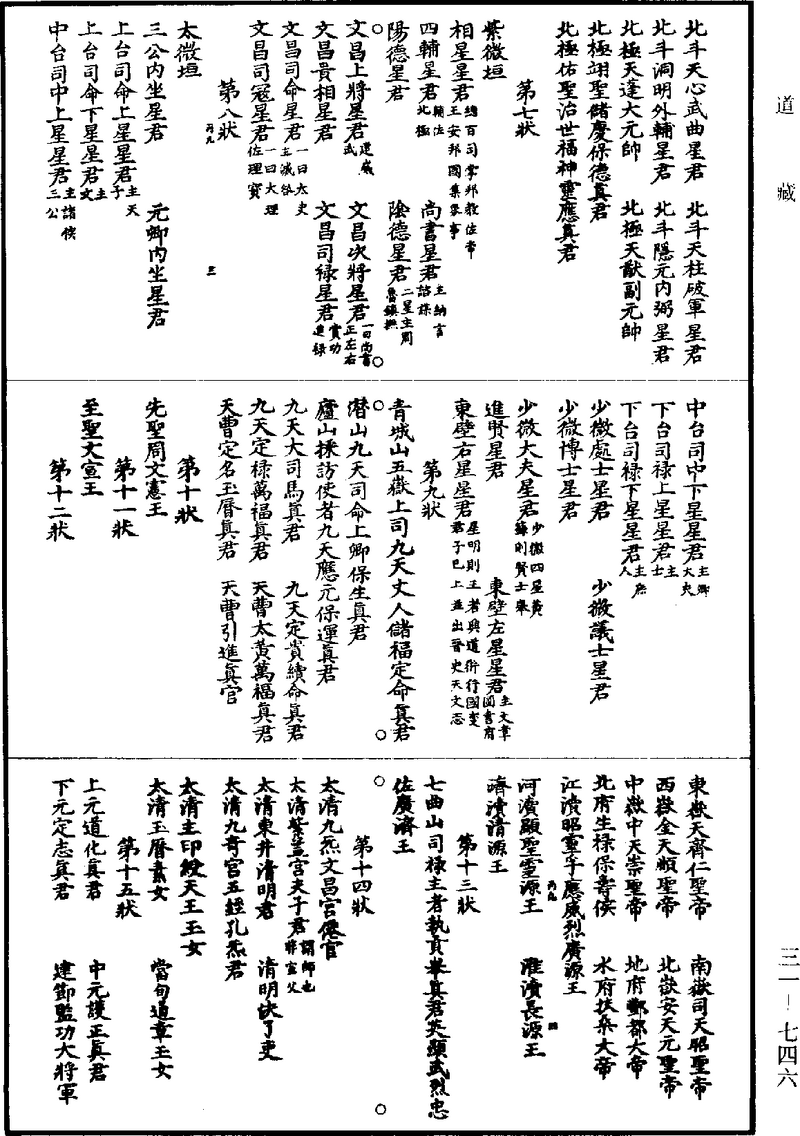 道藏
北斗天心武曲星君　北斗天柱破軍星君
北斗洞明外輔星君　北斗隱元內弼星君
北極天蓬大元帥　北極天猷副元帥
北極翊聖儲慶保德真君
北極佑聖治世福神靈應真君
第七狀
紫微垣
相星星君總百司掌邦教佐帝王安邦國集眾事
四輔星君輔佐北極　尚書星君主納言諮謀
陽德星君　陰德星君二星主周急鎮撫
文昌上將星君建威武　文昌次將星君一曰尚書正左右
文昌貴相星君　文昌司祿星君賞功進祿
文昌司命星君一曰太史主滅咎
文昌司冠星君一曰大理佐理寶
第八狀
丙九　三
太微垣
三公內坐星君　元卿內坐星君
上台司命上星星君主天子
上台司命下星星君主女
中台司中上星星君主諸侯三公
中台司中下星星君主卿大夫
下台司祿上星星君主士
下台司祿下星星君主庶人
少微處士星君　少微議士星君
少微博士星君
少微大夫星君少微四星黃籙則賢士舉
進賢星君　東壁左星星君主文章圖書府
東壁右星星君星明則王者興道術行國多君子已上並出晉史天文志
第九狀
青城山五嶽上司九天丈人儲福定命真君
潛山九天司命上卿保生真君
廬山採訪使者九天應元保運真君
九天大司馬真君　九天定貴續命真君
九天定祿萬福真君　天曹太黃萬福真君
天曹定名玉曆真君　天曹引進真官
第十狀
先聖周文憲王
第十一狀
至聖文宣王
第十二狀
東嶽天齊仁聖帝　南嶽司天昭聖帝
西嶽金天順聖帝　北嶽安天元聖帝
中嶽中天崇聖帝　地府酆都大帝
北府生祿保壽侯　水府扶桑大帝
江瀆昭靈孚應威烈廣源王
丙九　四
河瀆顯聖靈源王　淮瀆長源王
濟瀆清源王
第十三狀
七曲山司祿主者執貢舉真君英顯武烈忠
佐廣濟王
第十四狀
太清九炁文昌宮僊官
太清紫蓋宮夫子君謂師也將宣父
太清東井清明君　清明訣了吏
太清九奇宮五經孔炁君
太清主印綬天王玉女
太清玉曆素女　當旬道章玉女
第十五狀
上元道化真君　中元護正真君
下元定志真君　建節監功大將軍
三一—七四六